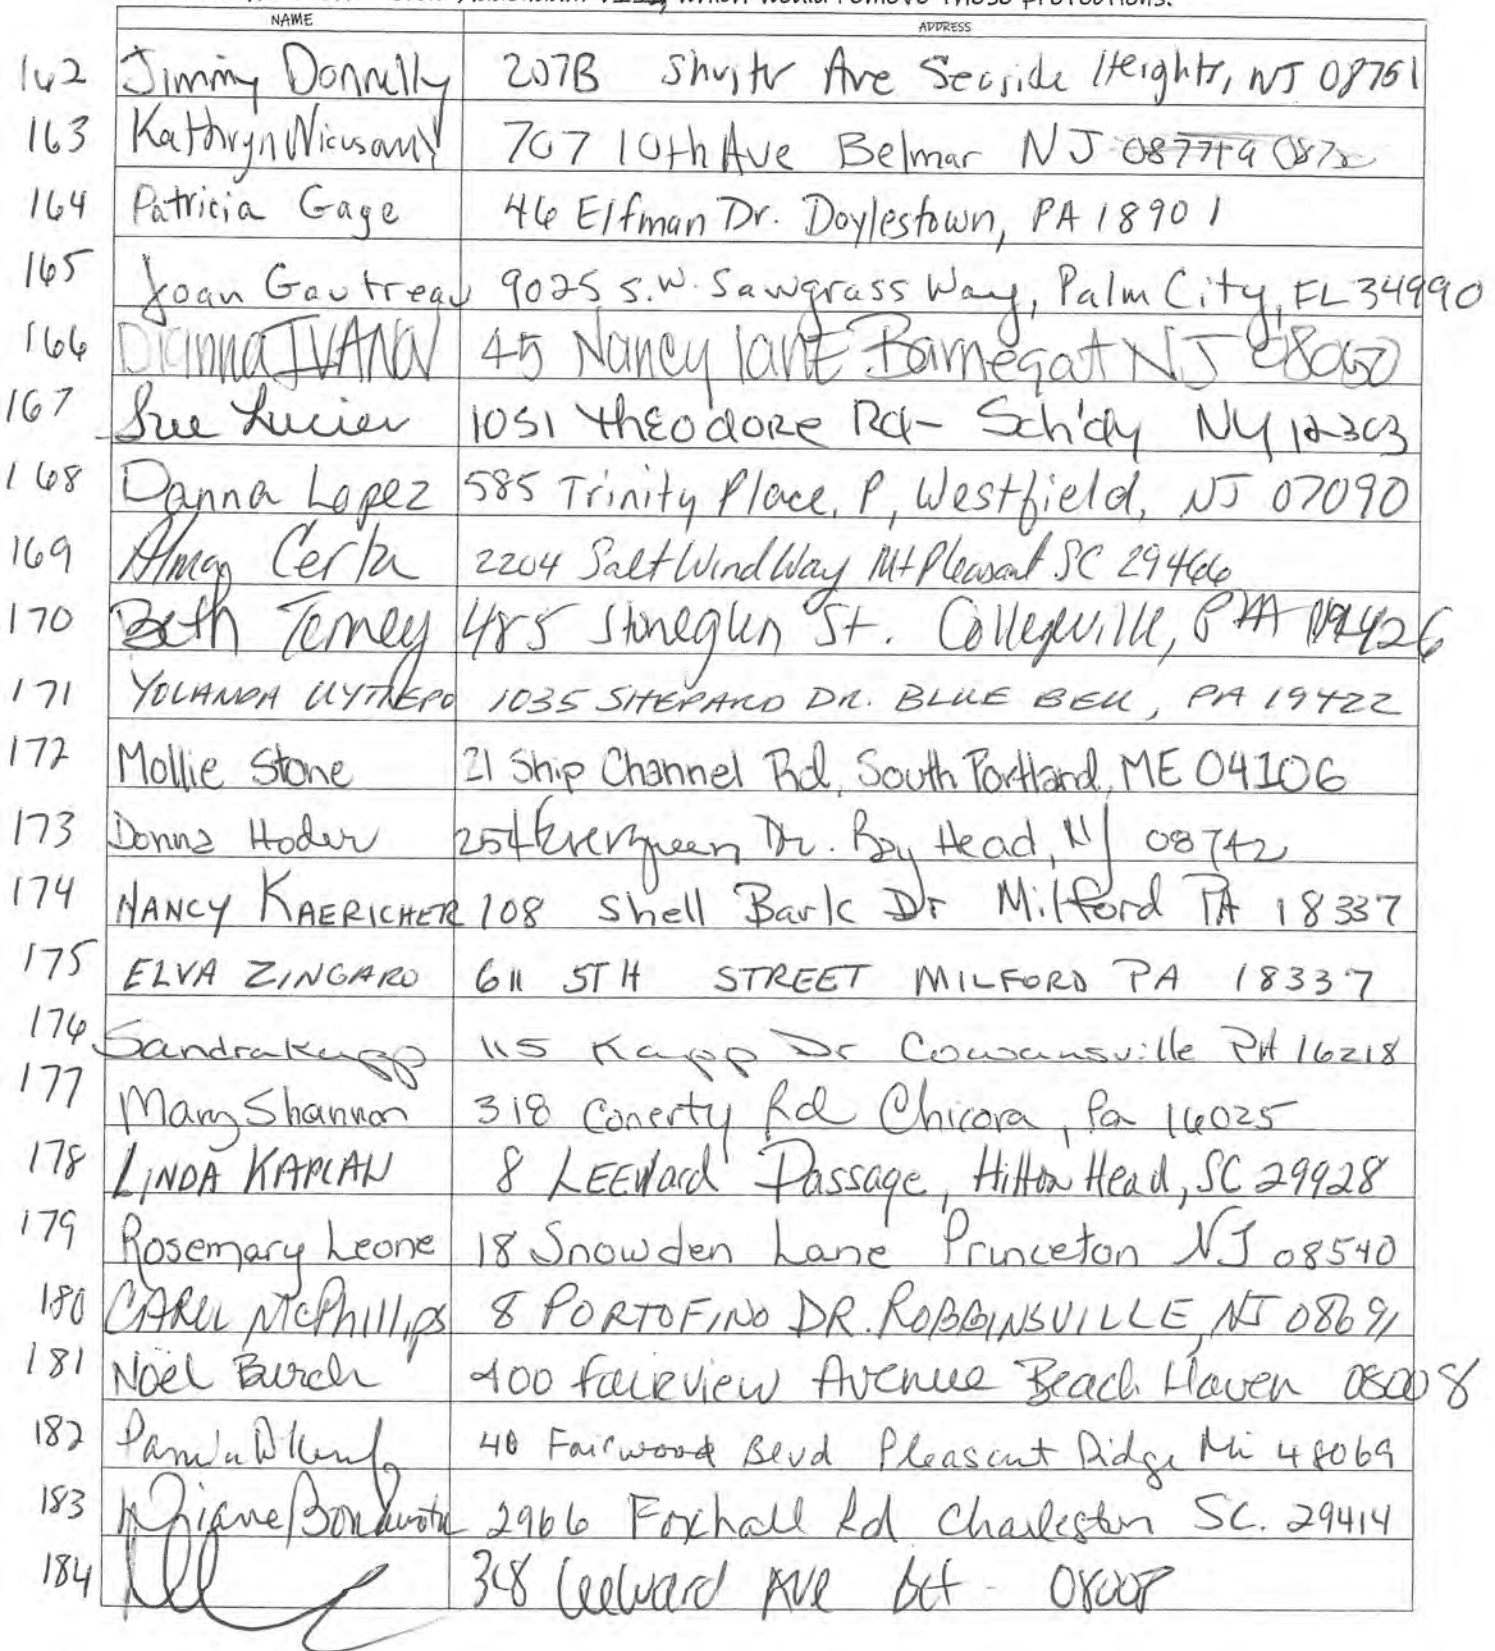 which would remove these protections.
NAME ADDRESS
162 Jimmy Donnelly 207B Ave Seaside Heights, NJ 08751
163 Kathryn 707 10th Ave Belmar NJ
164 Patricia Gage 46 Elfman Dr. Doylestown, PA 18901
165 Joan Gautreau 9025 S.W. Sawgrass Way, Palm City, FL 34990
166 Dianna 45 Nancy lane Barnegat NJ
167 Sue Lucier 1051 Theodore Rd- Sch'dy NY 12303
168 Danna Lopez 585 Trinity Place, P, Westfield, NJ 07090
169 2204 Salt Wind Way Mt Pleasant SC 29466
170 Beth 485 Stoneglen St. Collegeville, PA 19426
171 YOLANDA 1035 SHEPARD DR. BLUE BELL, PA 19422
172 Mollie Stone 21 Ship Channel Rd, South Portland, ME 04106
173 Donna Hoder 254 Evergreen Dr. Bay Head, NJ 08742
174 NANCY KAERICHER 108 Shell Bark Dr Milford PA 18337
175 ELVA ZINGARO 611 5TH STREET MILFORD PA 18337
176 Sandra Kapp 115 Kapp Dr Cowansville PA 16218
177 Mary Shannon 318 Conerty Rd Chicora, Pa 16025
178 LINDA KAPLAN 8 LEEWard Passage, Hilton Head, SC 29928
179 Rosemary Leone 18 Snowden Lane Princeton NJ 08540
180 CAROL McPhillips 8 PORTOFINO DR. ROBBINSVILLE, NJ 08691
181 Noël Burch 400 Fairview Avenue Beach Haven 08008
182 40 Fairwood Blvd Pleasant Ridge Mi 48069
183 Diane 2966 Foxhall Rd Charleston SC. 29414
184 348 Leeward Ave 08008